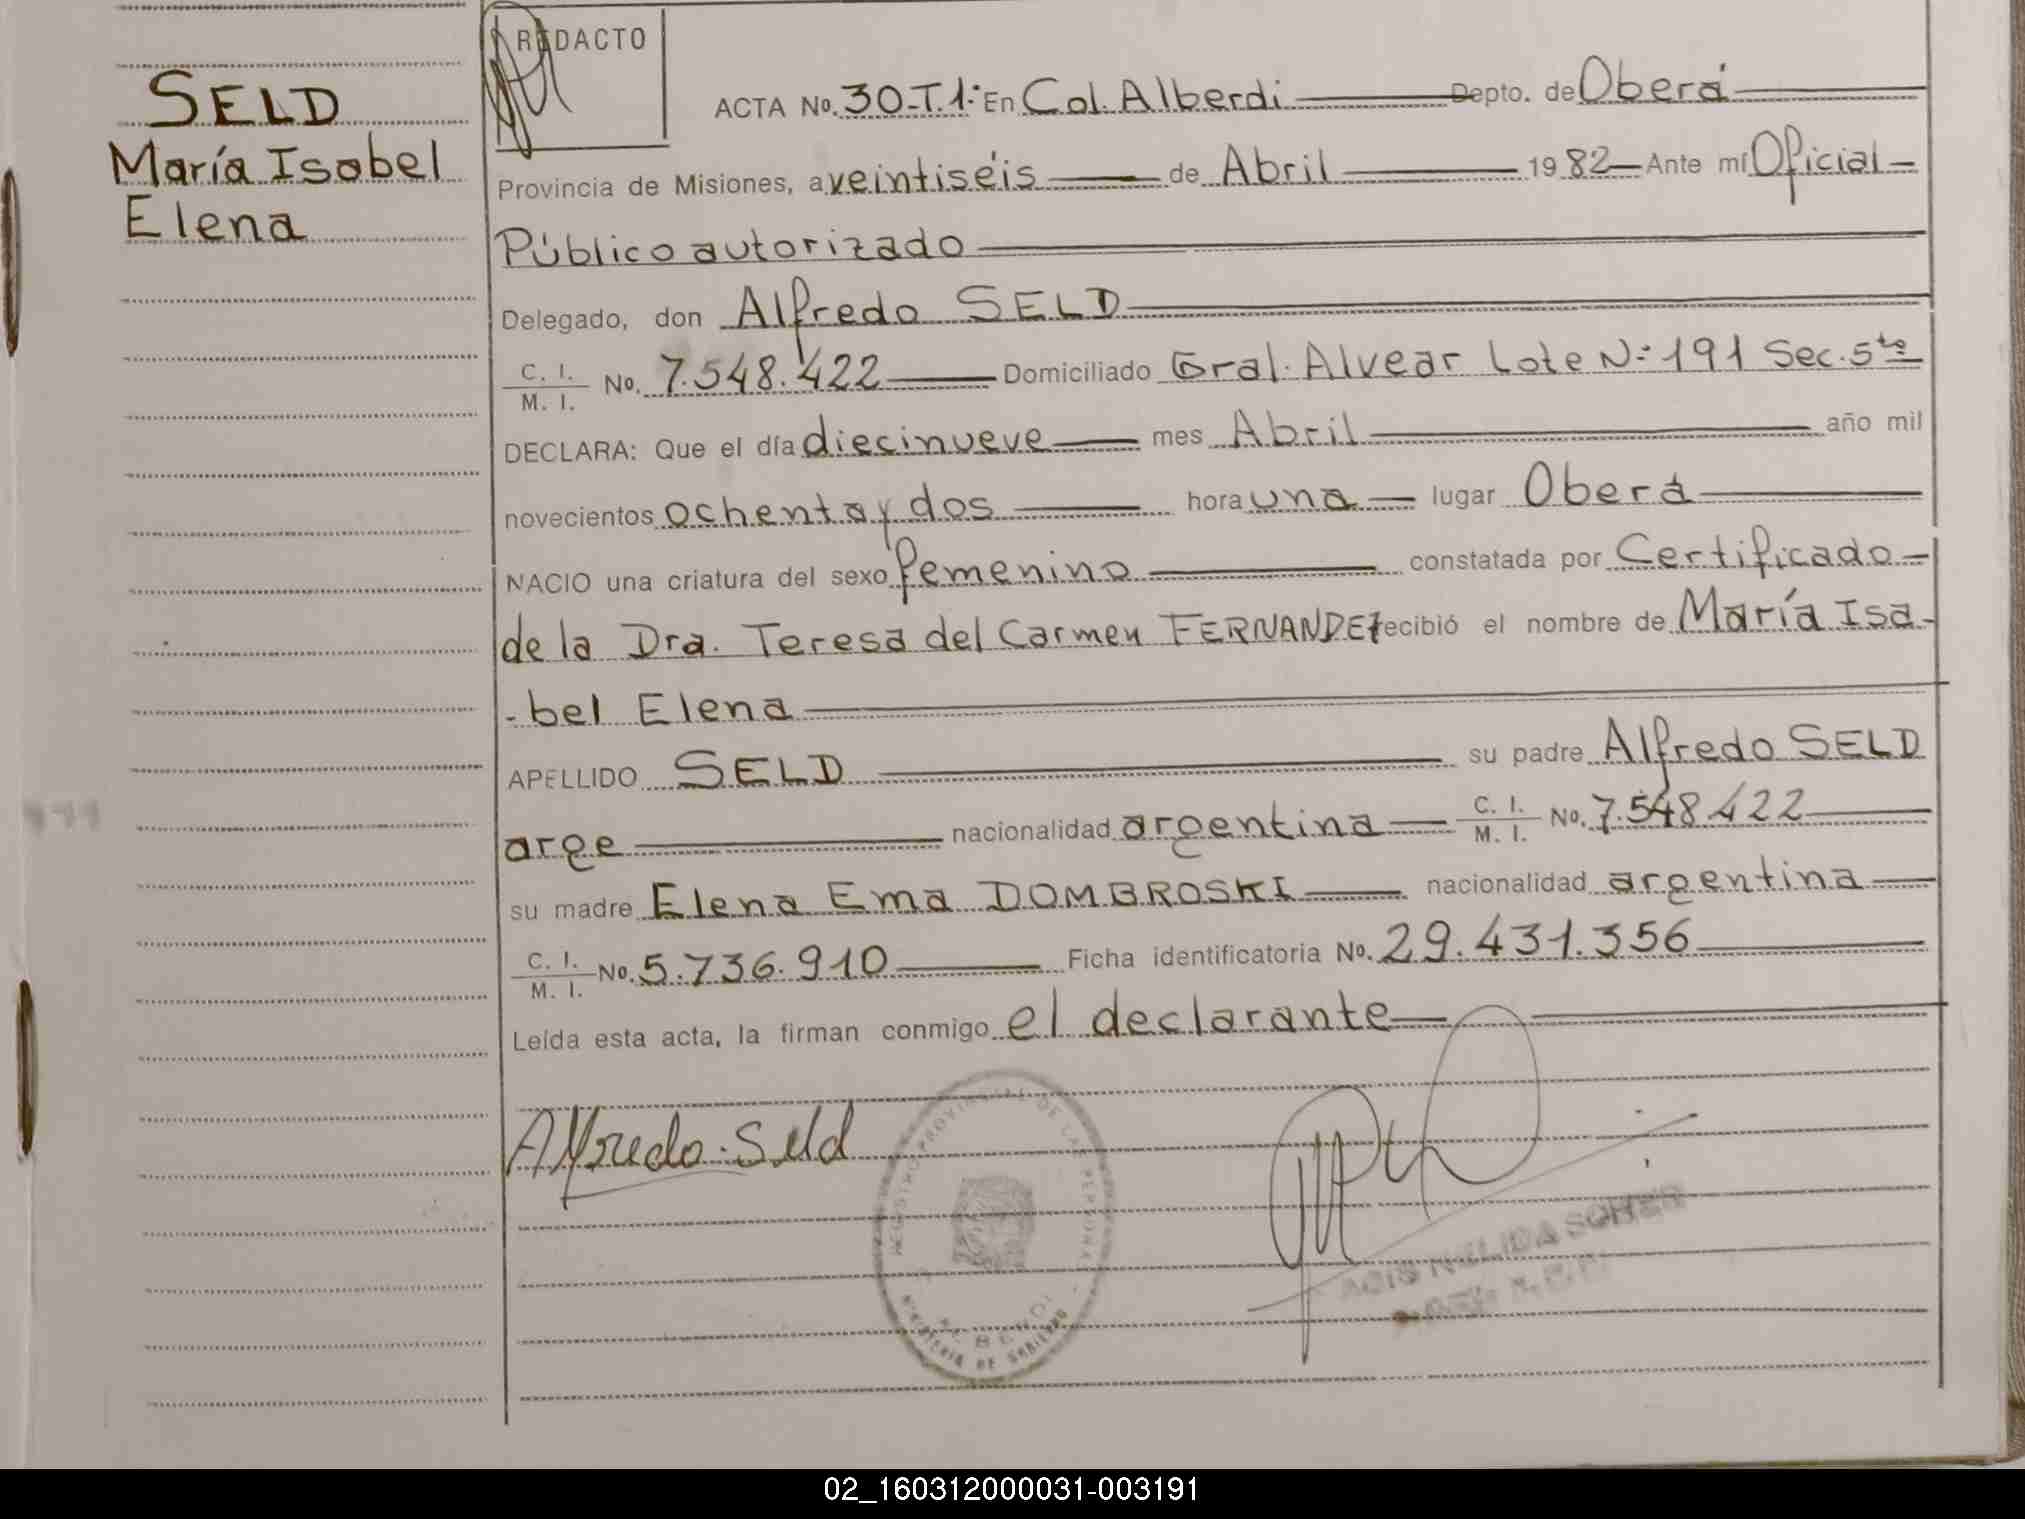 SELD
María Isabel
Elena
REDACTO
ACTA No. 30-T.1º En Col. Alberdi Depto. de Oberá
Provincia de Misiones, a veintiséis de Abril 1982 Ante mí Oficial
Público autorizado
Delegado, don Alfredo SELD
C. I. / M. I. No. 7.548.422 Domiciliado Gral. Alvear Lote Nº 191 Sec. 5ta
DECLARA: Que el día diecinueve mes Abril año mil
novecientos ochenta y dos hora una lugar Oberá
NACIO una criatura del sexo femenino constatada por Certificado
de la Dra. Teresa del Carmen FERNANDEZ recibió el nombre de María Isa-
-bel Elena
APELLIDO SELD su padre Alfredo SELD
arge nacionalidad argentina C. I. / M. I. No. 7.548.422
su madre Elena Ema DOMBROSKI nacionalidad argentina
C. I. / M. I. No. 5.736.910 Ficha identificatoria No. 29.431.356
Leída esta acta, la firman conmigo el declarante
Alfredo Seld
REGISTRO PROVINCIAL DE LAS PERSONAS
MINISTERIO DE GOBIERNO
02_160312000031-003191